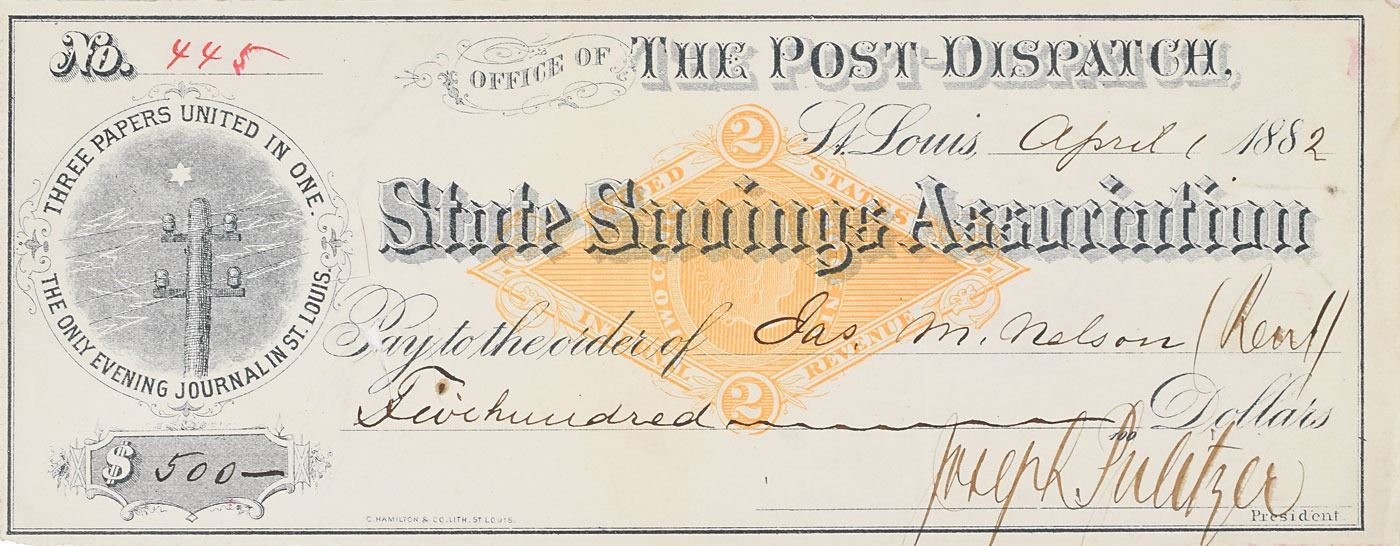 No. 445
OFFICE OF THE POST-DISPATCH,
St. Louis, April 1 1882
THREE PAPERS UNITED IN ONE.
THE ONLY EVENING JOURNAL IN ST. LOUIS.
2
UNITED STATES
State Savings Association
INTERNAL REVENUE
2
Pay to the order of Jas. M. Nelson (Rent)
Five hundred Dollars
100
$ 500-
Joseph Pulitzer
President
C. HAMILTON & CO. LITH. ST. LOUIS.